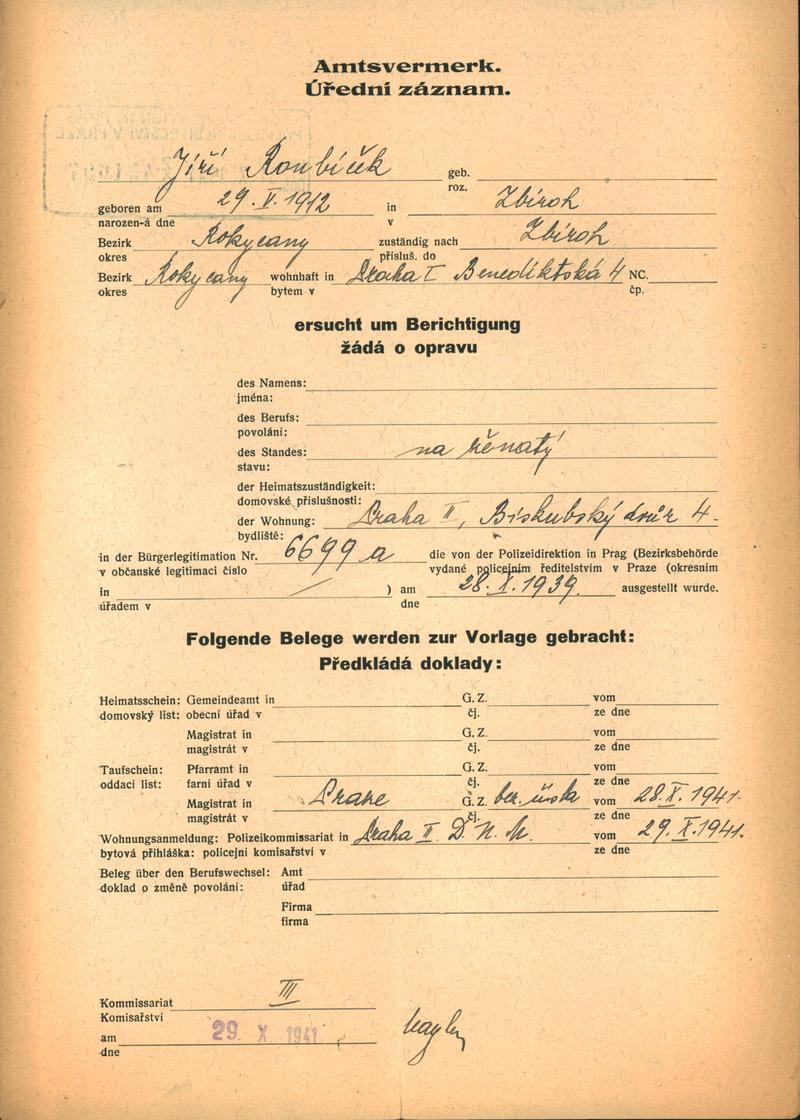 Amtsvermerk.
Úřední záznam.
Jiří Roubíček geb.
roz.
geboren am 29. V. 1912 in Zbiroh
narozen-á dne v
Bezirk Rokycany zuständig nach Zbiroh
okres přísluš. do
Bezirk Rokycany wohnhaft in Praha I Benediktská 4 NC.
okres bytem v čp.
ersucht um Berichtigung
žádá o opravu
des Namens:
jména:
des Berufs:
povolání:
des Standes: na ženatý
stavu:
der Heimatszuständigkeit:
domovské příslušnosti:
der Wohnung: Praha II, Biskubský dvůr 4-
bydliště:
in der Bürgerlegitimation Nr. 6699 a die von der Polizeidirektion in Prag (Bezirksbehörde
v občanské legitimaci číslo vydané policejním ředitelstvím v Praze (okresním
in / ) am 28. X. 1939. ausgestellt wurde.
úřadem v dne
Folgende Belege werden zur Vorlage gebracht:
Předkládá doklady:
Heimatsschein: Gemeindeamt in G. Z. vom
domovský list: obecní úřad v čj. ze dne
Magistrat in G. Z. vom
magistrát v čj. ze dne
Taufschein: Pfarramt in G. Z. vom
oddací list: farní úřad v čj. ze dne
Magistrat in Praze G. Z. bez čísla vom 28. X. 1941.
magistrát v čj. ze dne
Wohnungsanmeldung: Polizeikommissariat in Praha II D. N. M. vom 29. X. 1941.
bytová přihláška: policejní komisařství v ze dne
Beleg über den Berufswechsel: Amt
doklad o změně povolání: úřad
Firma
firma
Kommissariat III
Komisařství
am 29. X 1941
dne